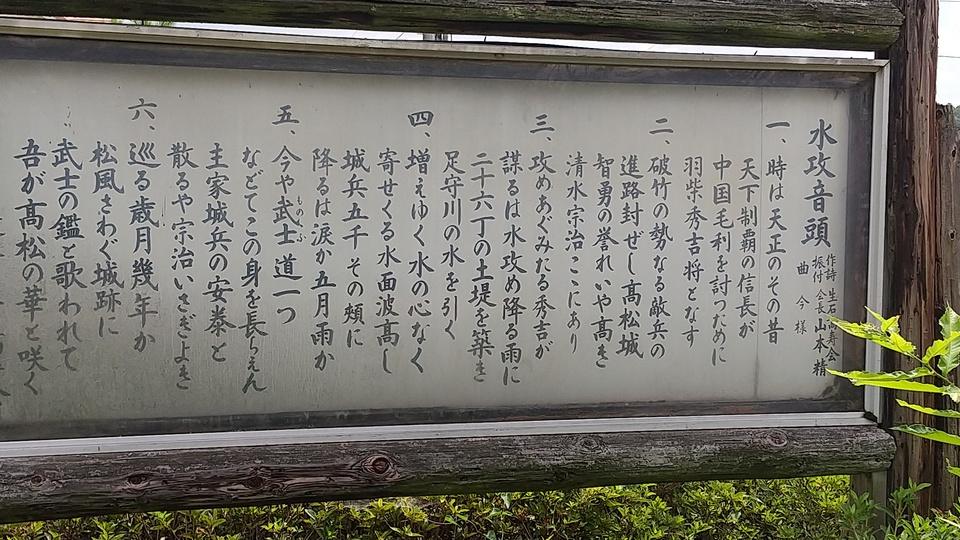 水攻音頭
作詩 生石 寿会
振付 会長 山本 精
曲 今様
一、時は天正のその昔
天下制覇の信長が
中国毛利を討つために
羽柴秀吉将となす
二、破竹の勢なる敵兵の
進路封ぜし高松城
智勇の誉れいや高き
清水宗治ここにあり
三、攻めあぐみたる秀吉が
謀るは水攻め降る雨に
二十六丁の土堤を築き
足守川の水を引く
四、増えゆく水の心なく
寄せくる水面波高し
城兵五千その頬に
降るは涙か五月雨か
五、今や武士道一つ
もののふ
などてこの身を長らえん
主家城兵の安泰と
散るや宗治いさぎよき
六、巡る歳月幾年か
松風さわぐ城跡に
武士の鑑と歌われて
吾が高松の華と咲く